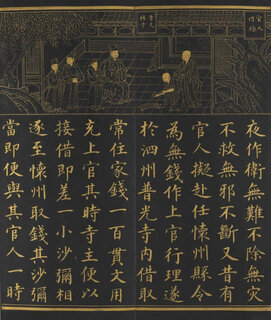 夜作衛無難不除無災
不救無邪不斷又昔有
官人擬赴任懷州縣令
為無錢作上官行理遂
於泗州普光寺內借取
常住家錢一百貫文用
充上官其時寺主便以
接借即差一小沙彌相
逐至懷州取錢其沙彌
當即便與其官人一時